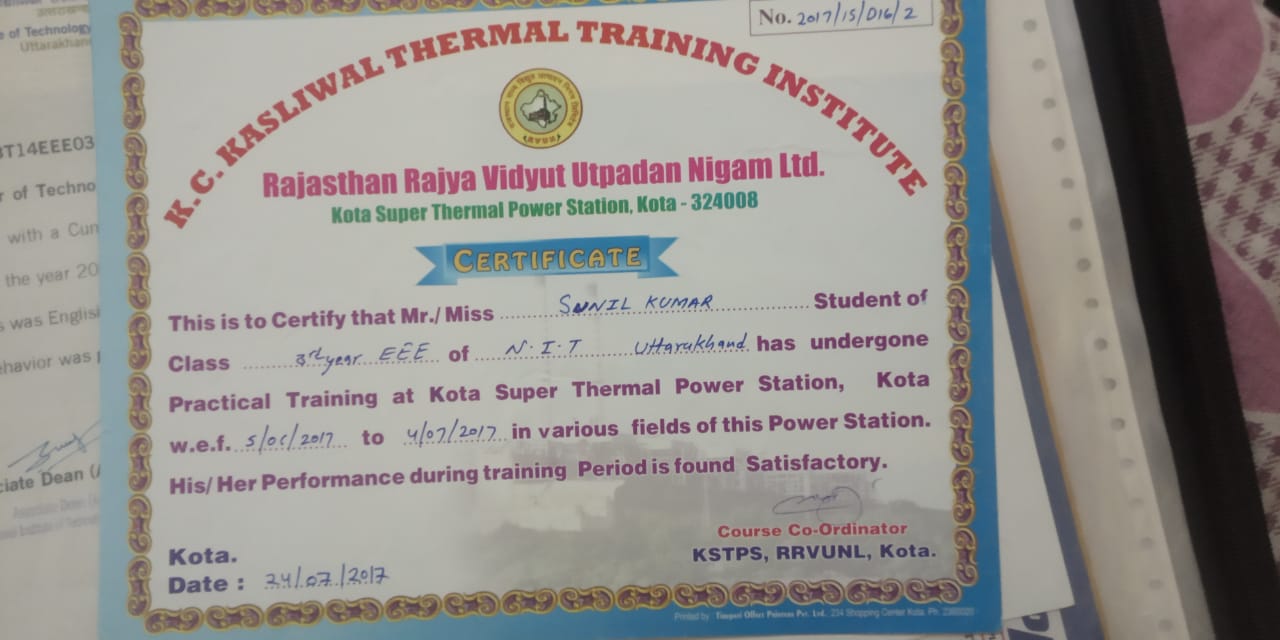 e of Technology
Uttarakhand
BT14EEE03
r of Techno
with a Cun
the year 20
s was Englis
ehavior was
ciate Dean (A
No. 2017/15/D16/2
K.C. KASLIWAL THERMAL TRAINING INSTITUTE
Rajasthan Rajya Vidyut Utpadan Nigam Ltd.
Kota Super Thermal Power Station, Kota - 324008
CERTIFICATE
This is to Certify that Mr./ Miss SUNIL KUMAR Student of
Class 3rd year EEE of N.I.T Uttarakhand has undergone
Practical Training at Kota Super Thermal Power Station, Kota
w.e.f. 5/06/2017 to 4/07/2017 in various fields of this Power Station.
His/ Her Performance during training Period is found Satisfactory.
Course Co-Ordinator
Kota.
KSTPS, RRVUNL, Kota.
Date : 24/07/2017
Printed by : Offset Printers Pvt. Ltd., 234 Shopping Center Kota. Ph.